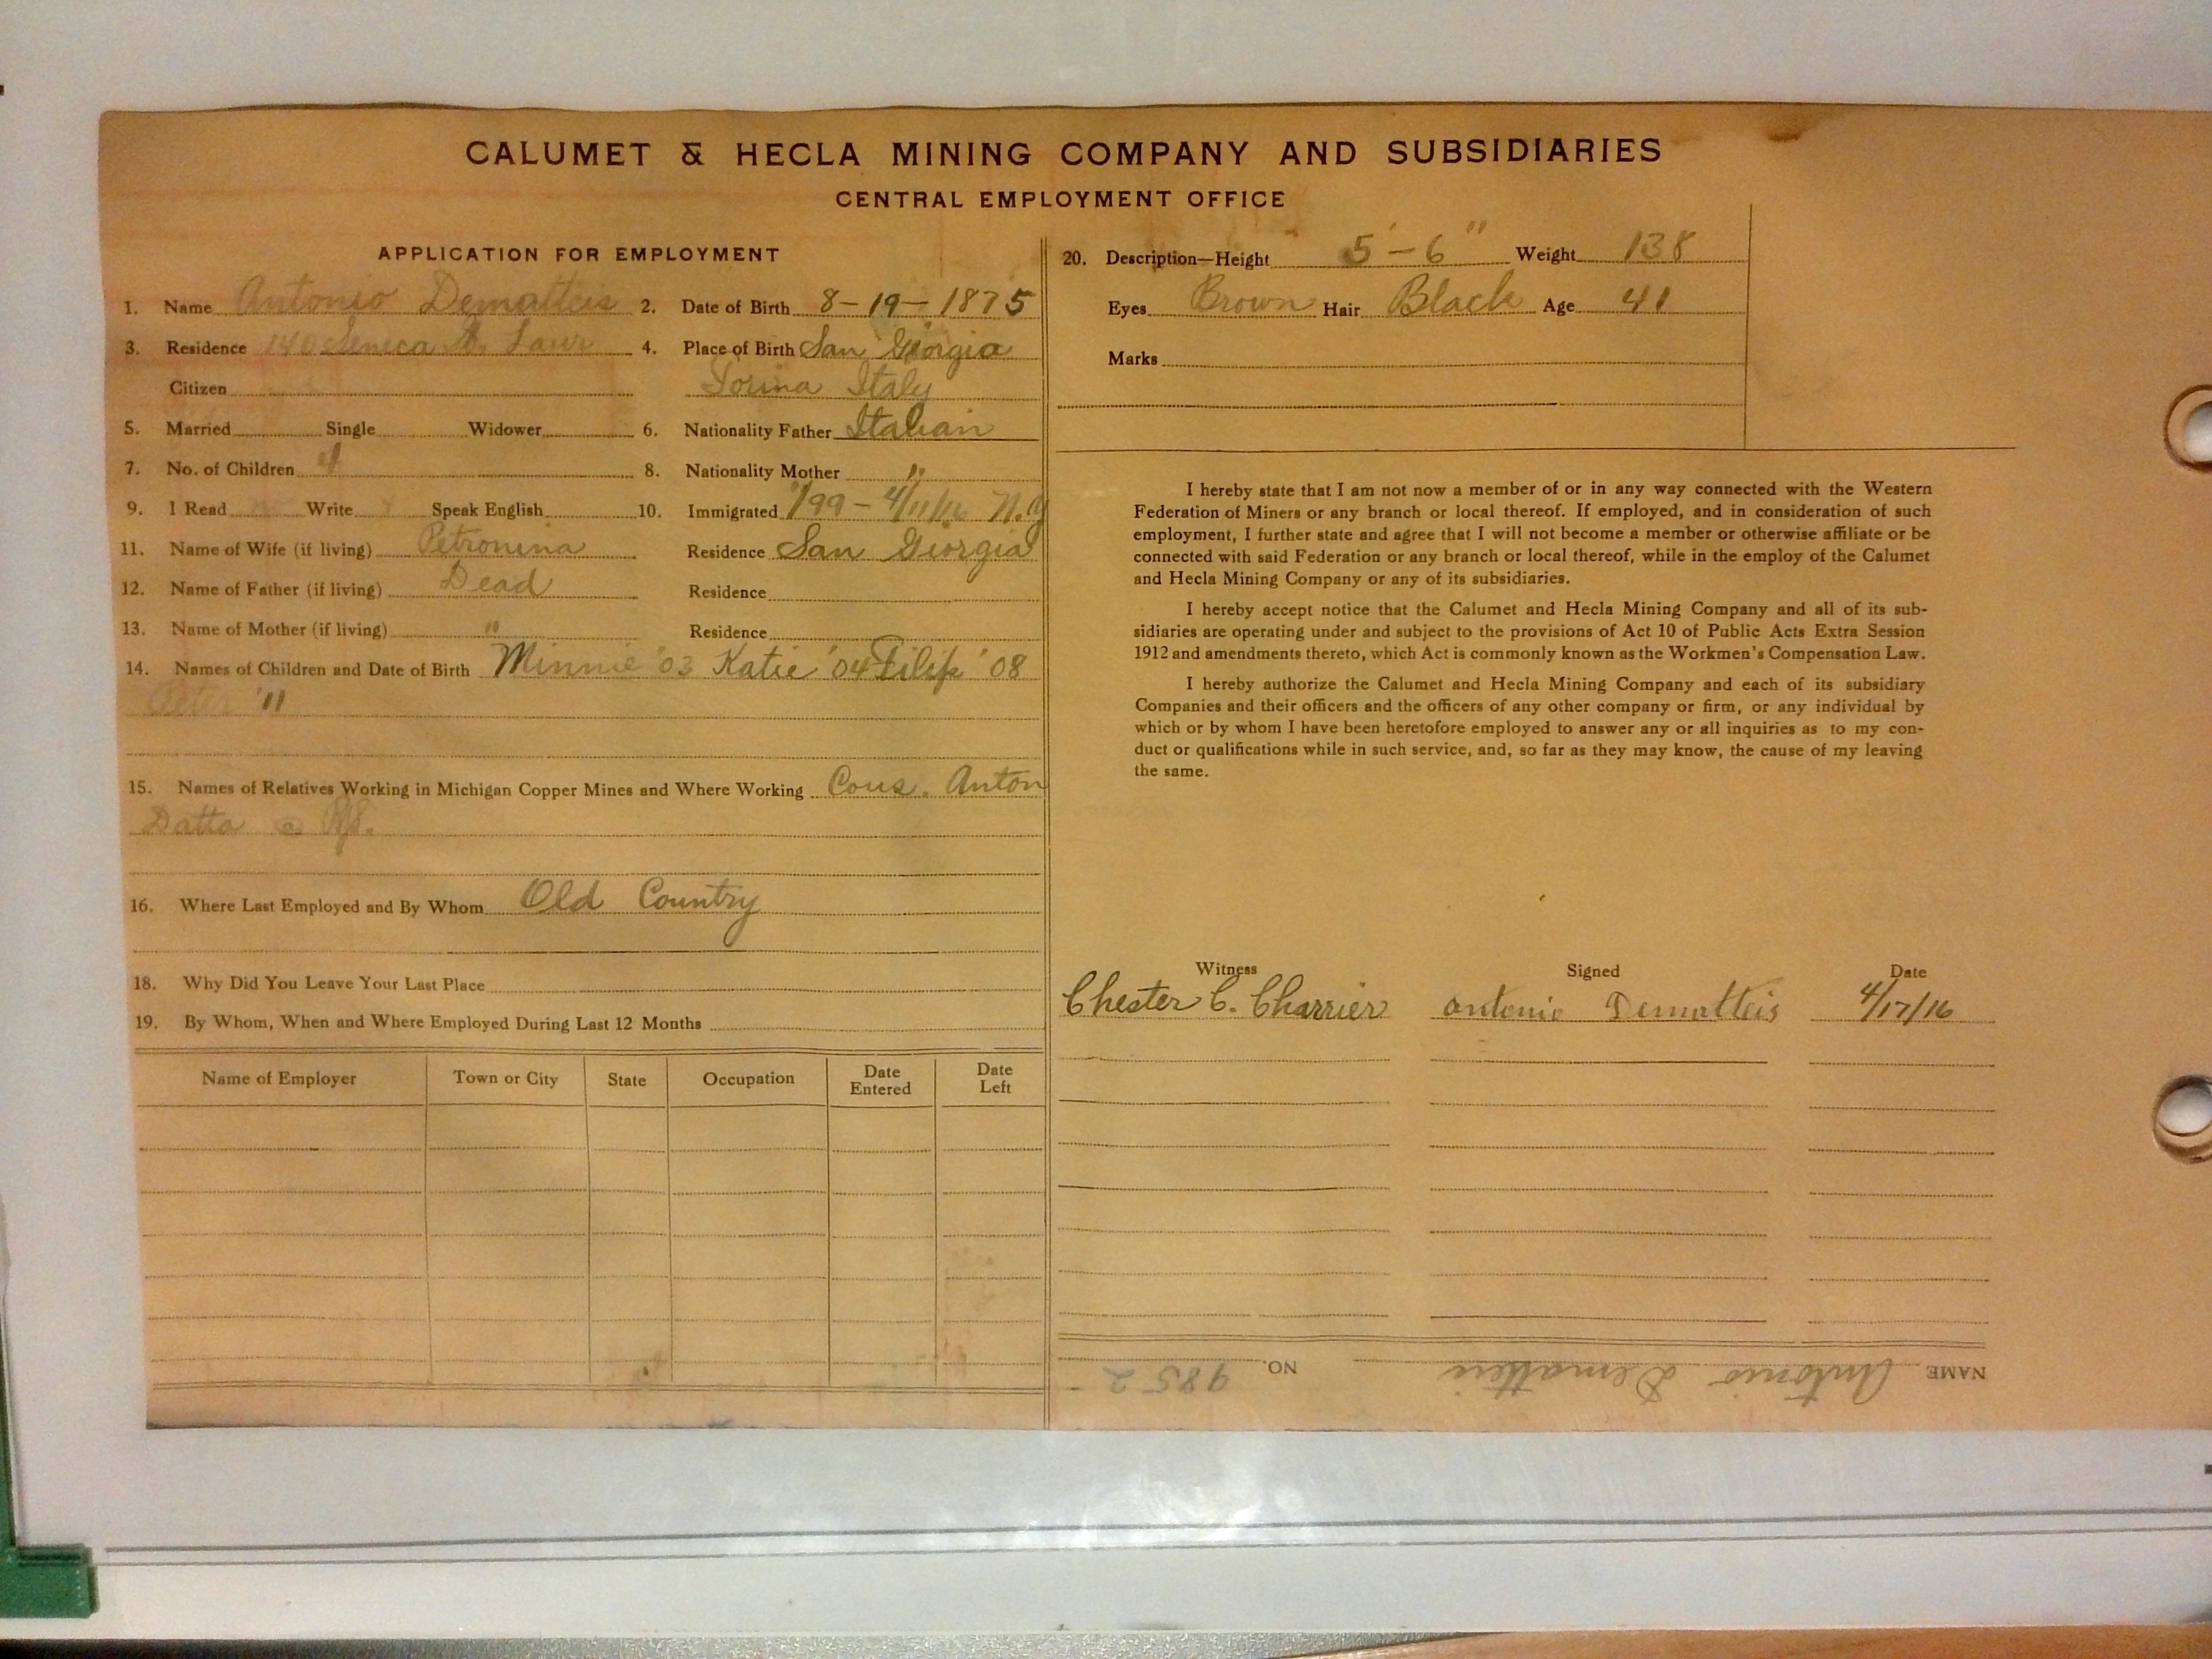 CALUMET & HECLA MINING COMPANY AND SUBSIDIARIES
CENTRAL EMPLOYMENT OFFICE
APPLICATION FOR EMPLOYMENT
1. Name Antonio Dematteis 2. Date of Birth 8-19-1875
3. Residence 140 Seneca St. Laur 4. Place of Birth San Giorgia
Citizen Torina Italy
5. Married Single Widower 6. Nationality Father Italian
7. No. of Children 4 8. Nationality Mother "
9. I Read Write Speak English 10. Immigrated '99 - 4/11/16 N.Y
11. Name of Wife (if living) Petronina Residence San Giorgia
12. Name of Father (if living) Dead Residence
13. Name of Mother (if living) " Residence
14. Names of Children and Date of Birth Minnie '03 Katie '04 Filip '08
Peter '11
15. Names of Relatives Working in Michigan Copper Mines and Where Working Cous. Anton
Datta @
16. Where Last Employed and By Whom Old Country
18. Why Did You Leave Your Last Place
19. By Whom, When and Where Employed During Last 12 Months
Name of Employer Town or City State Occupation Date Entered Date Left
20. Description—Height 5'-6" Weight 138
Eyes Brown Hair Black Age 41
Marks
I hereby state that I am not now a member of or in any way connected with the Western
Federation of Miners or any branch or local thereof. If employed, and in consideration of such
employment, I further state and agree that I will not become a member or otherwise affiliate or be
connected with said Federation or any branch or local thereof, while in the employ of the Calumet
and Hecla Mining Company or any of its subsidiaries.
I hereby accept notice that the Calumet and Hecla Mining Company and all of its sub-
sidiaries are operating under and subject to the provisions of Act 10 of Public Acts Extra Session
1912 and amendments thereto, which Act is commonly known as the Workmen's Compensation Law.
I hereby authorize the Calumet and Hecla Mining Company and each of its subsidiary
Companies and their officers and the officers of any other company or firm, or any individual by
which or by whom I have been heretofore employed to answer any or all inquiries as to my con-
duct or qualifications while in such service, and, so far as they may know, the cause of my leaving
the same.
Witness Signed Date
Chester C. Charrier Antonio Dematteis 4/17/16
NAME Antonio Dematteis NO. 9852